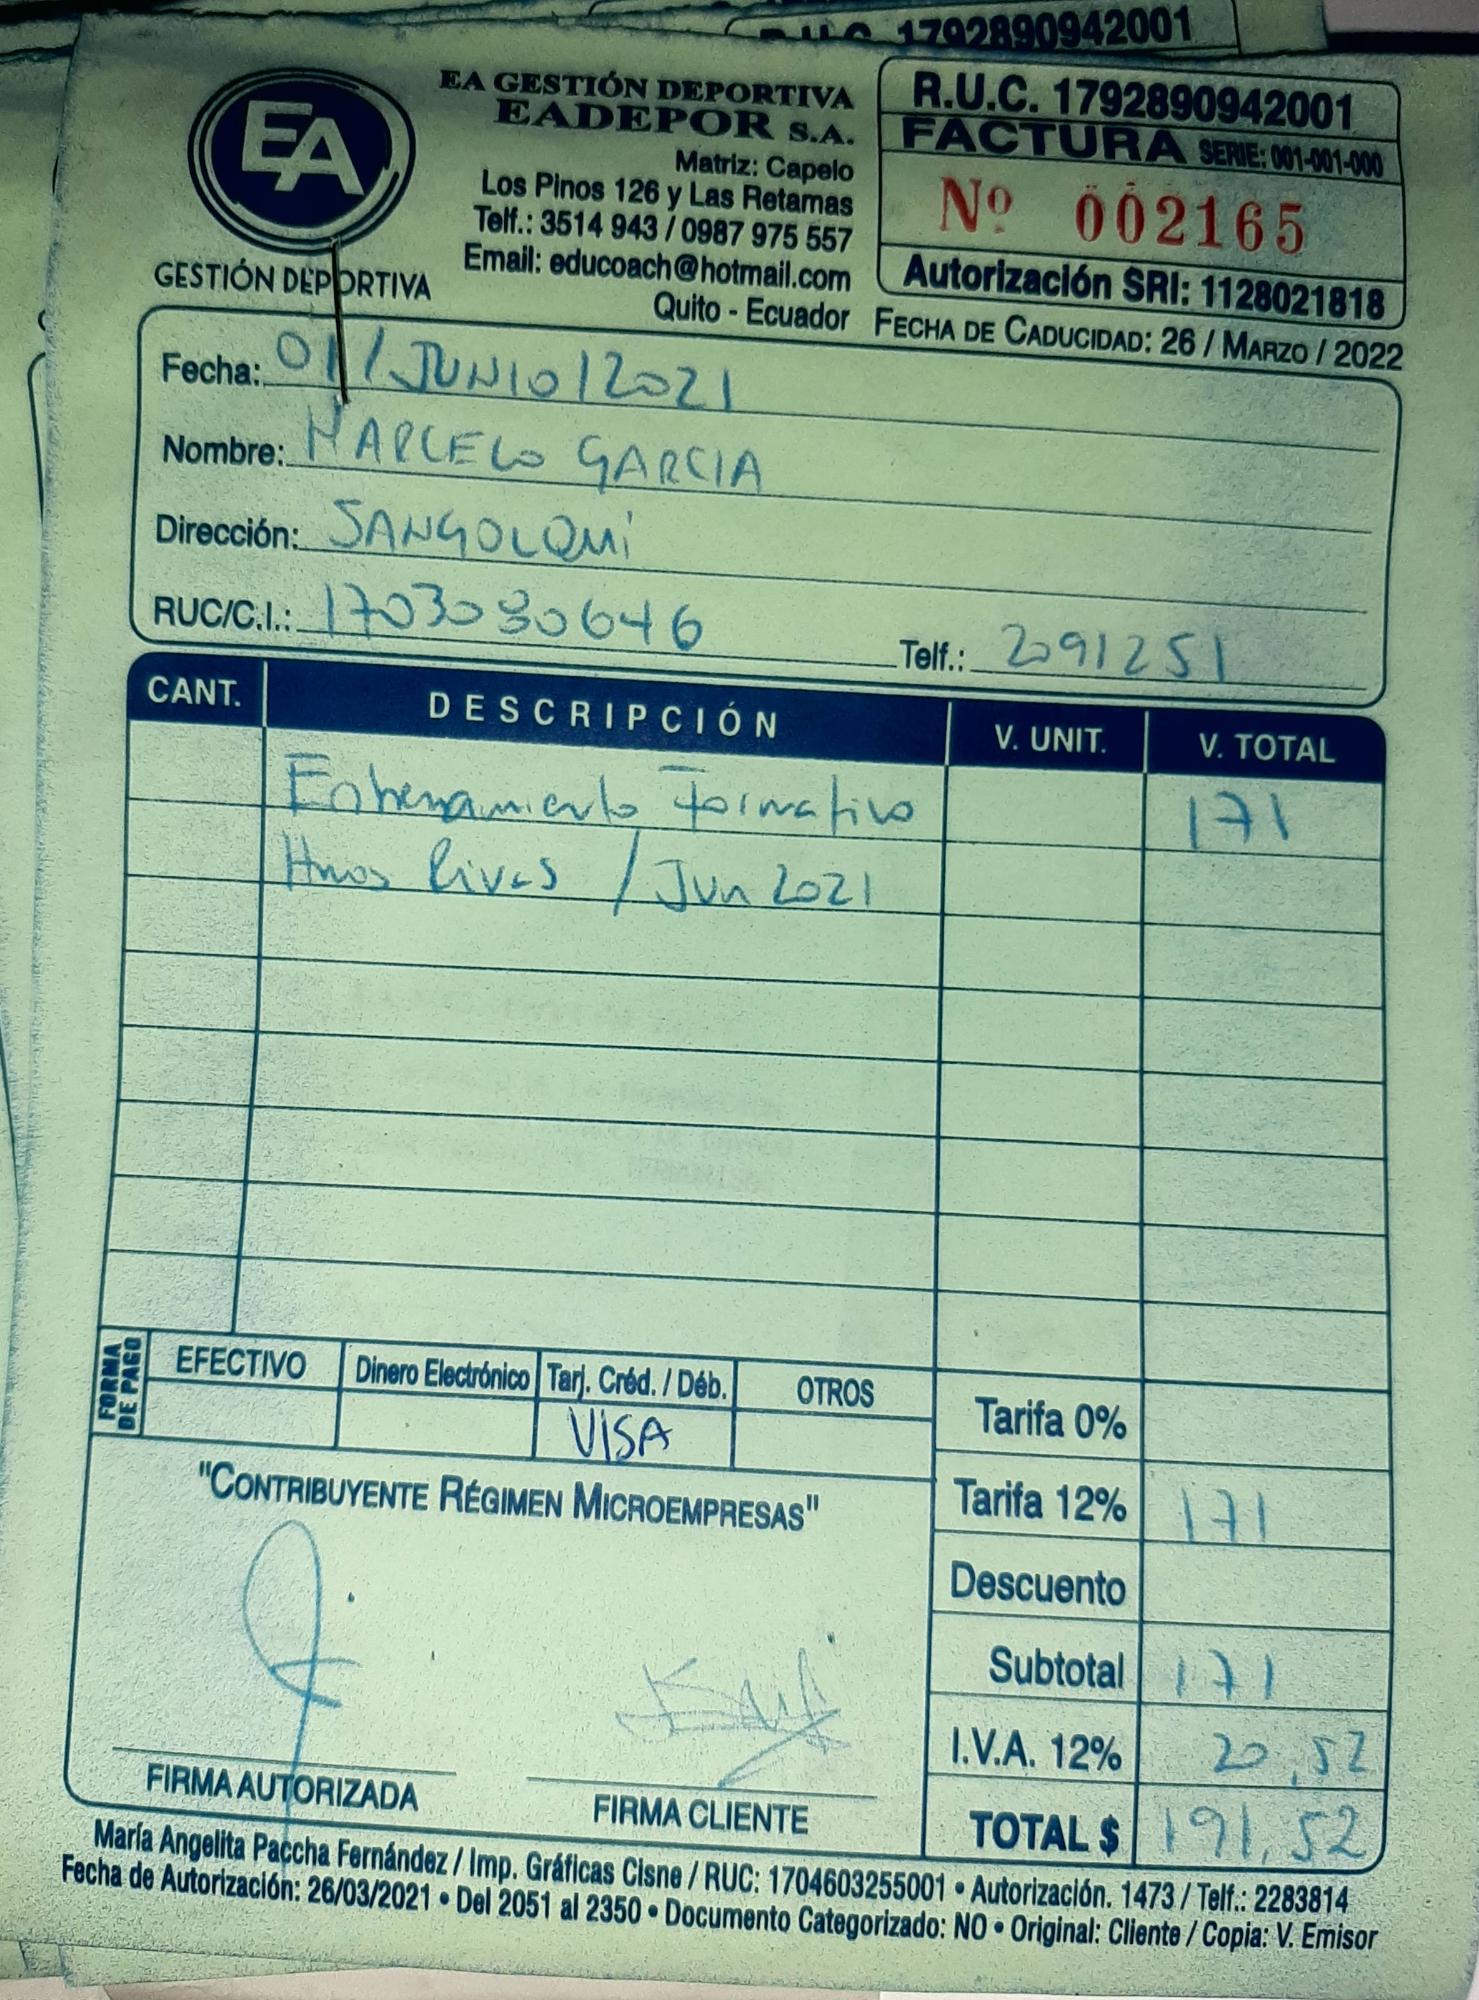 R.U.C. 1792890942001
EA
GESTIÓN DEPORTIVA
EA GESTIÓN DEPORTIVA
EADEPOR S.A.
Matriz: Capelo
Los Pinos 126 y Las Retamas
Telf.: 3514 943 / 0987 975 557
Email: educoach@hotmail.com
Quito - Ecuador
R.U.C. 1792890942001
FACTURA SERIE: 001-001-000
Nº 002165
Autorización SRI: 1128021818
FECHA DE CADUCIDAD: 26 / MARZO / 2022
Fecha: 01/JUNIO/2021
Nombre: MARCELO GARCIA
Dirección: SANGOLQUÍ
RUC/C.I.: 1703030646 Telf.: 2091251
CANT. DESCRIPCIÓN V. UNIT. V. TOTAL
Entrenamiento Formativo 171
Hnos Rivas / Jun 2021
FORMA DE PAGO
EFECTIVO Dinero Electrónico Tarj. Créd. / Déb. OTROS
VISA
Tarifa 0%
"CONTRIBUYENTE RÉGIMEN MICROEMPRESAS"
Tarifa 12% 171
Descuento
Subtotal 171
I.V.A. 12% 20,52
TOTAL $ 191,52
FIRMA AUTORIZADA FIRMA CLIENTE
María Angelita Paccha Fernández / Imp. Gráficas Cisne / RUC: 1704603255001 • Autorización. 1473 / Telf.: 2283814
Fecha de Autorización: 26/03/2021 • Del 2051 al 2350 • Documento Categorizado: NO • Original: Cliente / Copia: V. Emisor